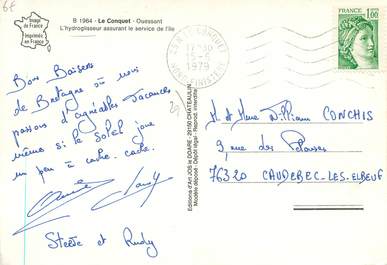 6F
B 1964 - Le Conquet - Ouessant
L'hydroglisseur assurant le service de l'île
Image
de France
Imprimée
en France
Bons Baisers
de Bretagne où nous
passons d'agréables vacances
même si le soleil joue
un peu à cache-cache.
Steste et Rudy
Editions d'Art JOS le DOARÉ - 29150 CHATEAULIN
Modèle déposé - Dépôt légal - Reprod. interdite
LE CONQUET
1979
NORD FINISTERE
1,00
M. et Mme William CONCHIS
9 rue des Pelouses
76320 CAUDEBEC-LES-ELBEUF